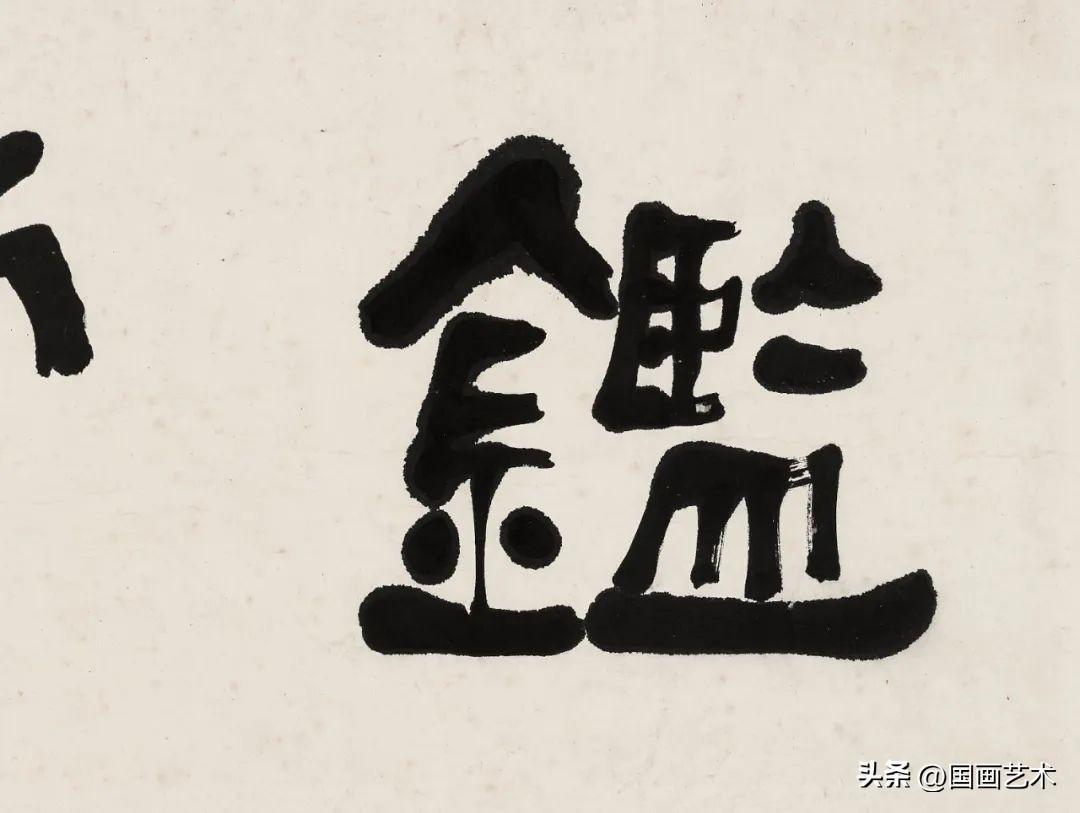 鑑
头条 @国画艺术